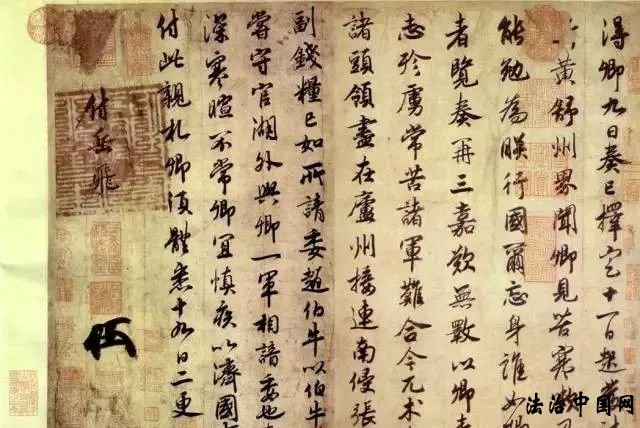 得卿九日奏已擇定十一日起發
黄舒州界聞卿見苦寒嗽乃
能勉為朕行國爾忘身誰如卿
者覽奏再三嘉歎無斁以卿素
志殄虜常苦諸軍難合今兀术
諸頭領盡在廬州接連南侵張
副錢糧已如所請委趙伯牛以伯牛
嘗守官湖外與卿一軍相諳委也
深寒暄不常卿宜慎疾以濟國
付此親札卿須體悉十九日二更
付岳飛
法治中国网